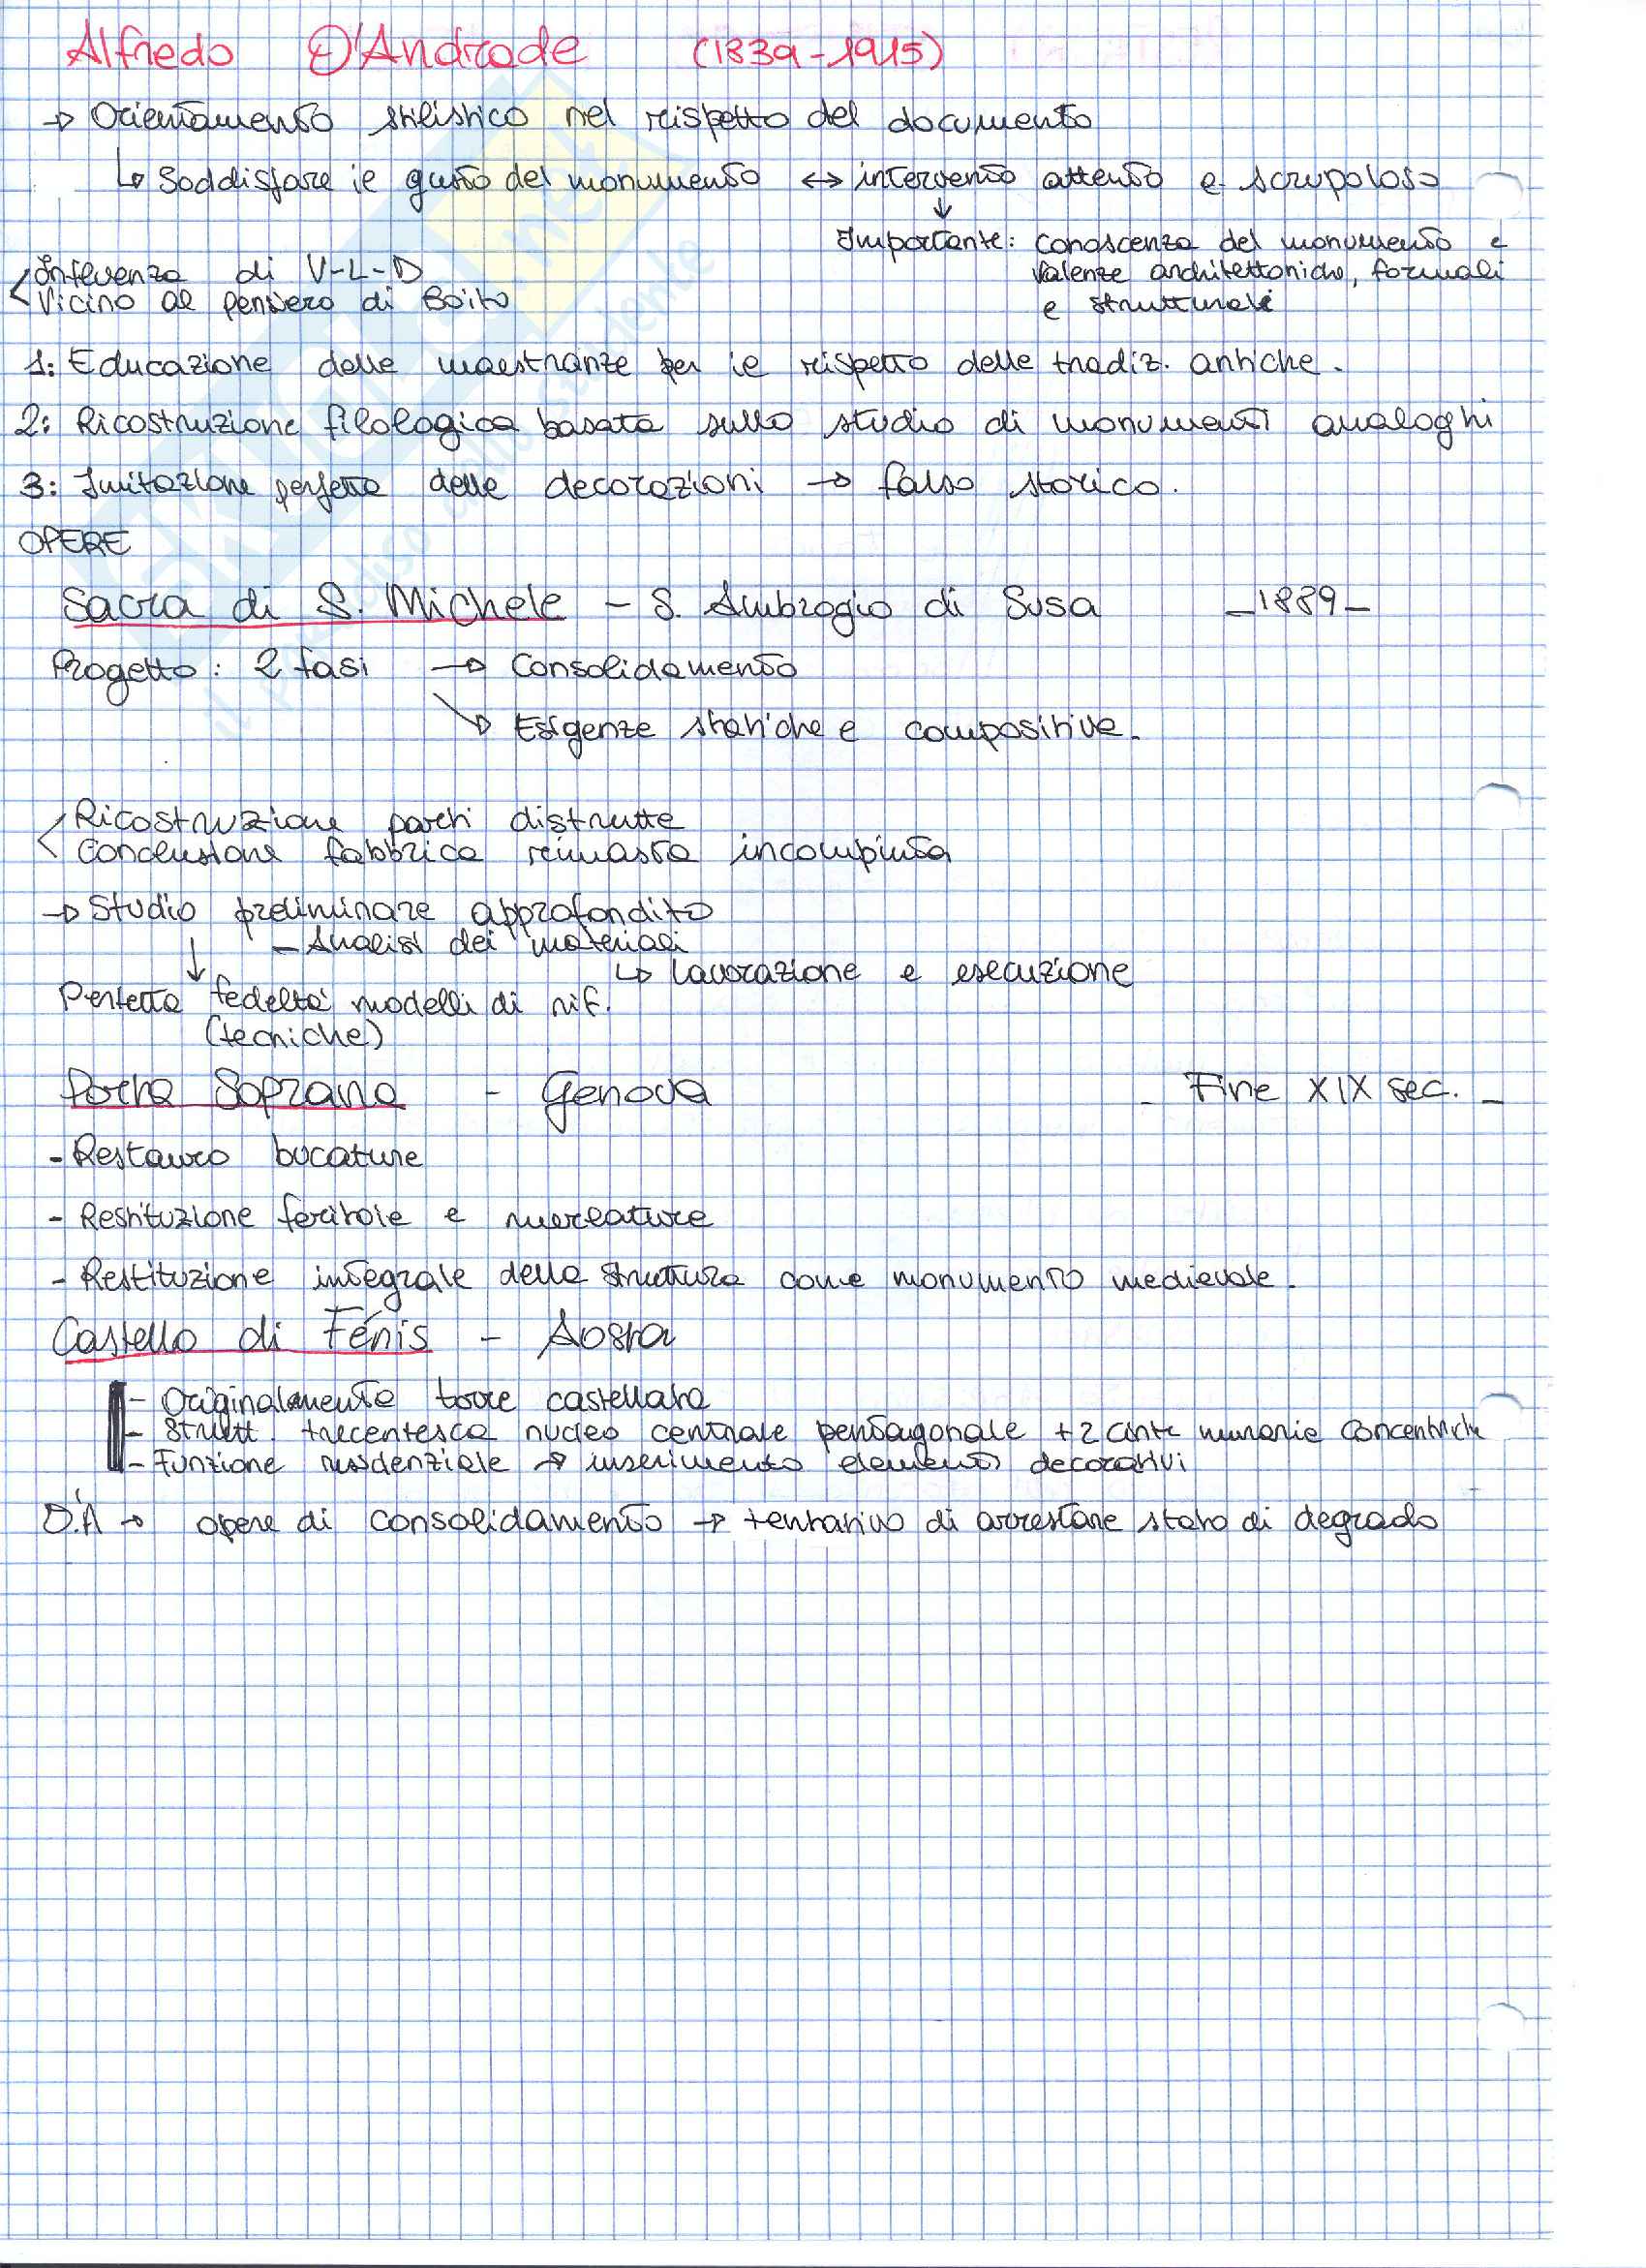 Alfredo D'Andrade (1839-1915)
→ Orientamento stilistico nel rispetto del documento
↳ Soddisfare il gusto del monumento ↔ intervento attento e scrupoloso
↓
Importante: conoscenza del monumento e
valenze architettoniche, formali
e strutturali
Influenza di V-L-D
Vicino al pensiero di Boito
1: Educazione delle maestranze per il rispetto delle tradiz. antiche.
2: Ricostruzione filologica basata sullo studio di monumenti analoghi
3: Imitazione perfetta delle decorazioni → falso storico.
OPERE
Sacra di S. Michele - S. Ambrogio di Susa -1889-
Progetto: 2 fasi → Consolidamento
↘ Esigenze statiche e compositive.
Ricostruzione parti distrutte
Conclusione fabbrica rimasta incompiuta
→ Studio preliminare approfondito
↓ - Analisi dei materiali
↳ lavorazione e esecuzione
Perfetta fedeltà modelli di rif.
(tecniche)
Porta Soprana - Genova - Fine XIX sec. -
- Restauro bucature
- Restituzione feritoie e merlature
- Restituzione integrale della struttura come monumento medievale.
Castello di Fénis - Aosta
- Originalmente torre castellata
- Strutt. trecentesca nucleo centrale pentagonale + 2 cinte murarie concentriche
- Funzione residenziale → inserimento elementi decorativi
D'A → opere di consolidamento → tentativo di arrestare stato di degrado